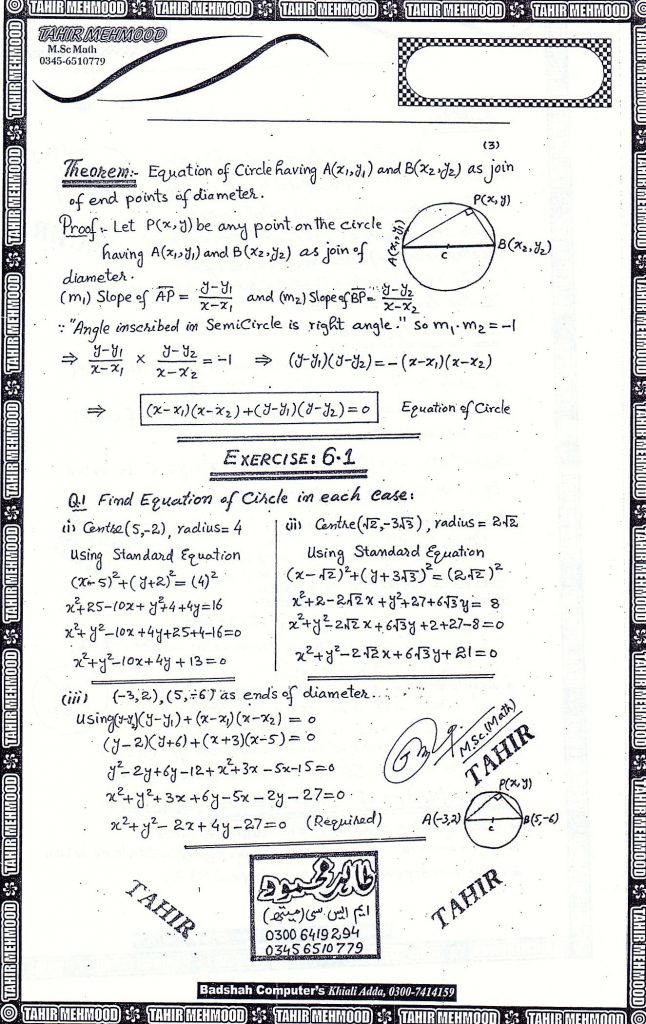 TAHIR MEHMOOD
M.Sc Math
0345-6510779
(3)
Theorem:- Equation of Circle having A(x₁,y₁) and B(x₂,y₂) as join
of end points of diameter.
Proof:- Let P(x,y) be any point on the circle
having A(x₁,y₁) and B(x₂,y₂) as join of
diameter.
P(x,y)
A(x₁,y₁)
B(x₂,y₂)
C
(m₁) Slope of AP = (y-y₁)/(x-x₁) and (m₂) Slope of BP = (y-y₂)/(x-x₂)
∵ "Angle inscribed in SemiCircle is right angle." so m₁·m₂ = -1
⇒ (y-y₁)/(x-x₁) × (y-y₂)/(x-x₂) = -1 ⇒ (y-y₁)(y-y₂) = -(x-x₁)(x-x₂)
⇒ (x-x₁)(x-x₂)+(y-y₁)(y-y₂)=0 Equation of Circle
EXERCISE: 6.1
Q.1 Find Equation of Circle in each case:
(i) Centre(5,-2), radius= 4
Using Standard Equation
(x-5)²+(y+2)²=(4)²
x²+25-10x+y²+4+4y=16
x²+y²-10x+4y+25+4-16=0
x²+y²-10x+4y+13=0
(ii) Centre(√2,-3√3), radius = 2√2
Using Standard Equation
(x-√2)²+(y+3√3)²=(2√2)²
x²+2-2√2x+y²+27+6√3y = 8
x²+y²-2√2x+6√3y+2+27-8=0
x²+y²-2√2x+6√3y+21=0
(iii) (-3,2), (5,-6) as ends of diameter...
Using(y-y₂)(y-y₁)+(x-x₁)(x-x₂) = 0
(y-2)(y+6)+(x+3)(x-5)=0
y²-2y+6y-12+x²+3x-5x-15=0
x²+y²+3x+6y-5x-2y-27=0
x²+y²-2x+4y-27=0 (Required)
M.Sc.(Math)
TAHIR
P(x,y)
A(-3,2)
B(5,-6)
C
TAHIR
طاہر محمود
ایم ایس سی (میتھ)
0300 6419294
0345 6510779
TAHIR
Badshah Computer's Khiali Adda, 0300-7414159
TAHIR MEHMOOD